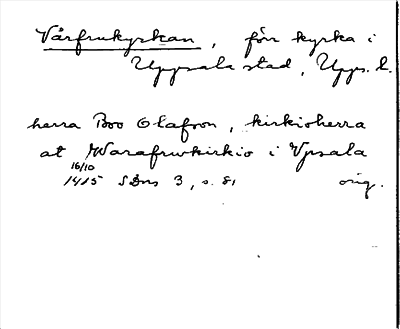 Vårfrukyrkan, förr kyrka i
Uppsala stad, Upps. l.
herra Boo Olafson, kirkioherra
at Warafrwkirkio i Vpsala
16/10
1415 SDns 3, s. 81 orig.